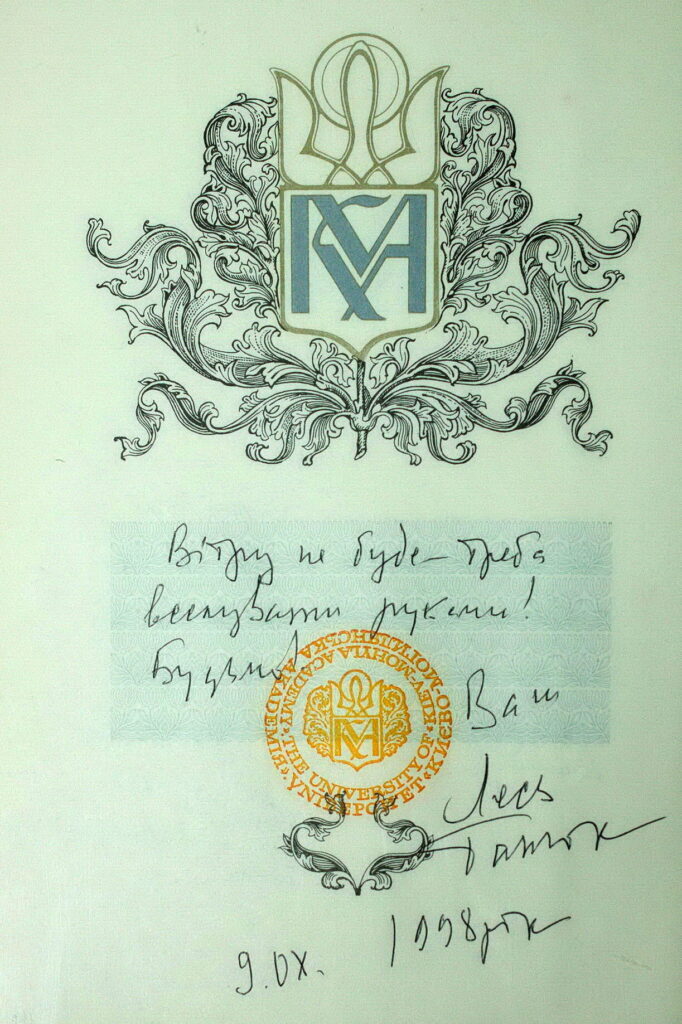 КМА
Вітру не буде – треба
веслувати руками!
Будьмо!
Ваш
УНІВЕРСИТЕТ "КИЄВО-МОГИЛЯНСЬКА АКАДЕМІЯ"
THE UNIVERSITY OF "KIEV-MOHYLA ACADEMY"
КМА
Лесь
Танюк
9.ІХ. 1998 рік